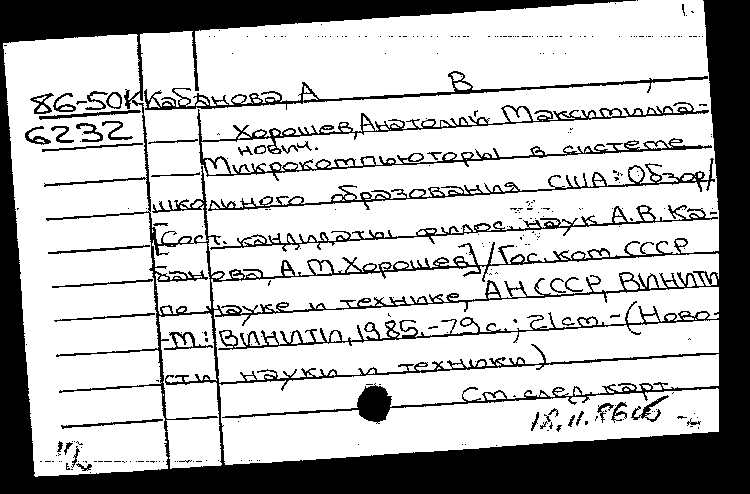 1.
86-50К Кабанова, А В ,
6232 Хорошев, Анатолий Максимилиа=
нович.
Микрокомпьюторы в системе
школьного образования США: Обзор/
[Сост. кандидаты филос. наук А.В. Ка=
банова, А.М. Хорошев]/Гос. ком. СССР
по науке и технике, АН СССР, ВИНИТИ
-М.: ВИНИТИ, 1985.-79 с.; 21 см.-(Ново-
сти науки и техники)
См. след. карт.
18.11.86